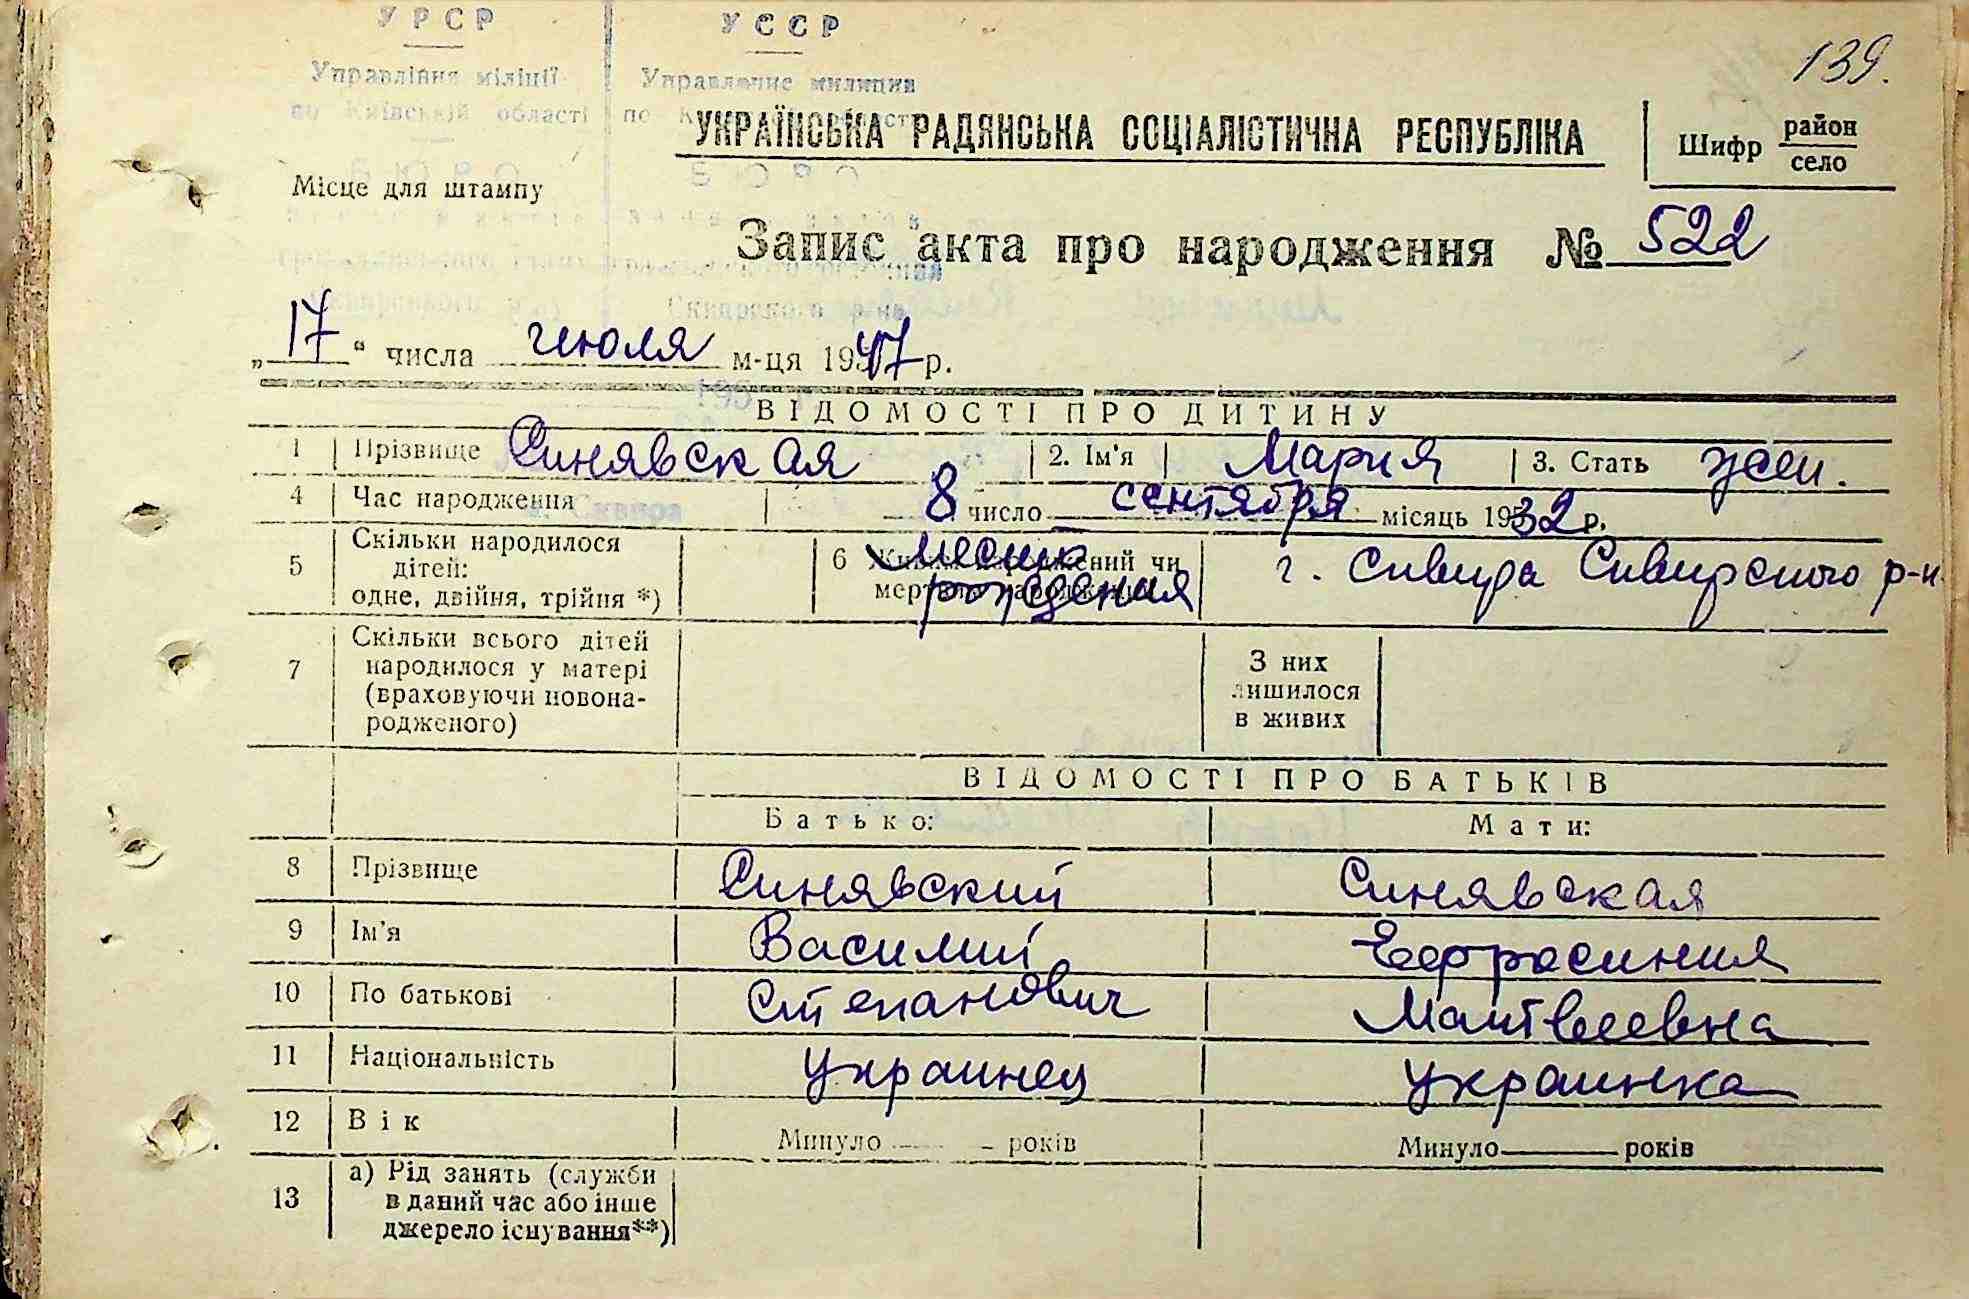 УРСР УССР
Управління міліції Управление милиции
по Київській області по
139.
УКРАЇНСЬКА РАДЯНСЬКА СОЦІАЛІСТИЧНА РЕСПУБЛІКА
Шифр район
село
Місце для штампу
Запис акта про народження № 522
„17“ числа июля м-ця 1947 р.
ВІДОМОСТІ ПРО ДИТИНУ
1 Прізвище Синявская 2. Ім'я Мария 3. Стать жен.
4 Час народження 8 число сентября місяць 1932 р.
5 Скільки народилося
дітей:
одне, двійня, трійня *)
6 Живим народжений чи
мертвим народжений
место
рождения
г. Сквира Сквирского р-н
7 Скільки всього дітей
народилося у матері
(враховуючи новона-
родженого)
З них
лишилося
в живих
ВІДОМОСТІ ПРО БАТЬКІВ
Батько: Мати:
8 Прізвище Синявский Синявская
9 Ім'я Василий Ефросиния
10 По батькові Степанович Матвеевна
11 Національність украинец украинка
12 Вік Минуло — років Минуло — років
13 а) Рід занять (служби
в даний час або інше
джерело існування**)